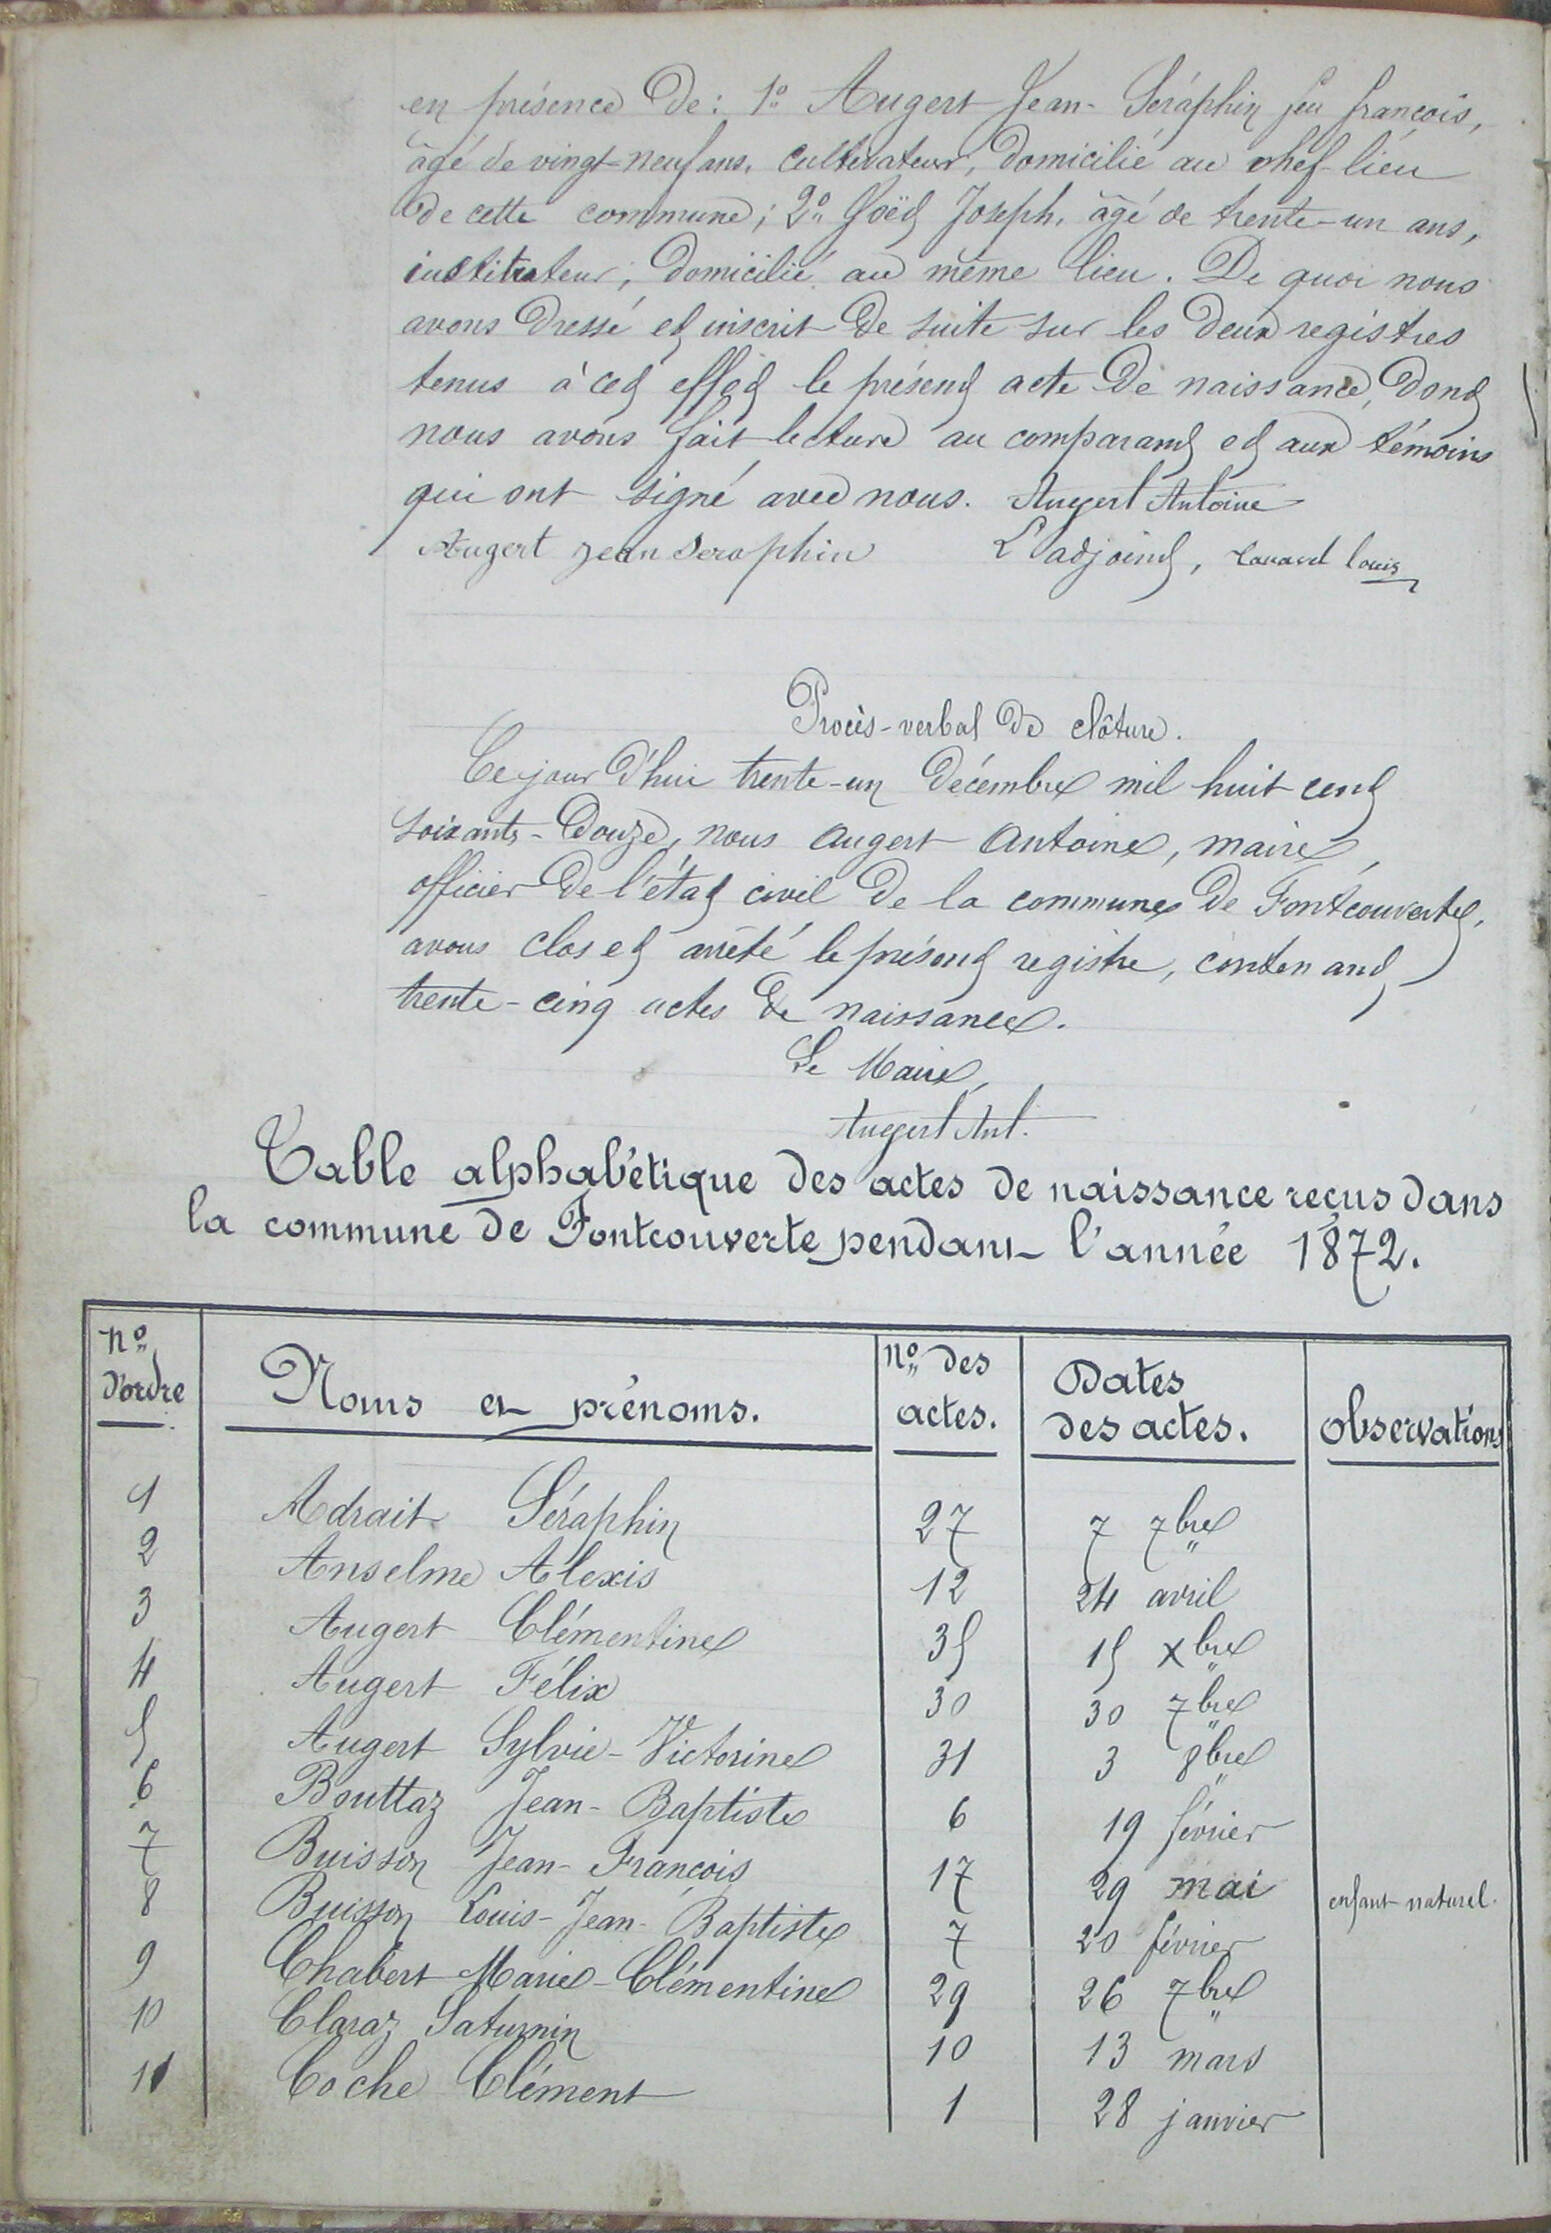 en présence de : 1° Augert Jean-Séraphin feu françois,
âgé de vingt-neuf ans, cultivateur, domicilié au chef-lieu
de cette commune ; 2° Joseph, âgé de trente-un ans,
instituteur, domicilié au même lieu. De quoi nous
avons dressé et inscrit de suite sur les deux registres
tenus à cet effet le présent acte de naissance, dont
nous avons fait lecture au comparant et aux témoins
qui ont signé avec nous. Augert Antoine
Augert Jean Seraphin L'adjoint, louis
Procès-verbal de clôture.
Ce jour d'hui trente-un décembre mil huit cent
soixante-douze, nous Augert Antoine, maire,
officier de l'état civil de la commune de Fontcouverte,
avons clos et arrêté le présent registre, contenant
trente-cinq actes de naissance.
Le Maire,
Augert Ant.
Table alphabétique des actes de naissance reçus dans
la commune de Fontcouverte pendant l'année 1872.
N° d'ordre Noms et prénoms. N° des actes. Dates des actes. Observations
1 Adrait Séraphin 27 7 7bre
2 Anselme Alexis 12 24 avril
3 Augert Clémentine 35 15 Xbre
4 Augert Félix 30 30 7bre
5 Augert Sylvie-Victorine 31 3 8bre
6 Bouttaz Jean-Baptiste 6 19 février
7 Buisson Jean-François 17 29 mai enfant naturel.
8 Buisson Louis-Jean-Baptiste 7 20 février
9 Chabert Marie-Clémentine 29 26 7bre
10 Claraz Saturnin 10 13 mars
11 Coche Clément 1 28 janvier